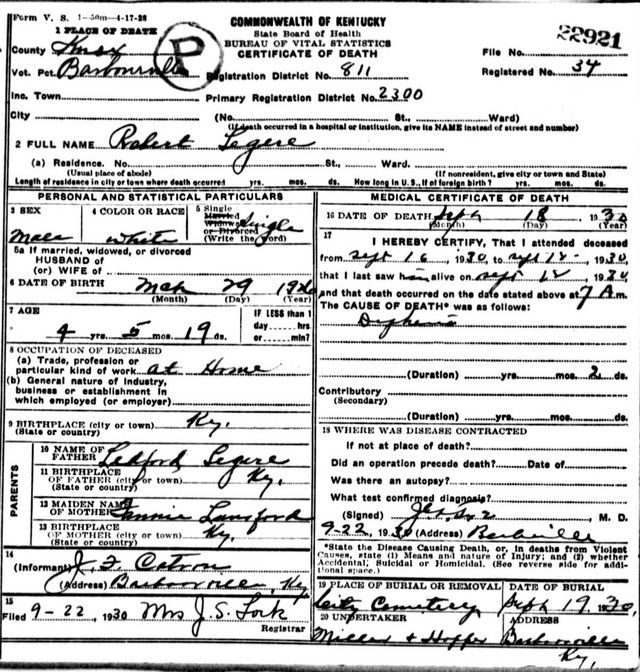 Form V. S. 1-50m-4-17-28
COMMONWEALTH OF KENTUCKY
State Board of Health
BUREAU OF VITAL STATISTICS
CERTIFICATE OF DEATH
22921
1 PLACE OF DEATH
County Knox
P
File No.
Vot. Pct. Barbourville
Registration District No. 811
Registered No. 34
Inc. Town
Primary Registration District No. 2300
City (No. St., Ward)
(If death occurred in a hospital or institution, give its NAME instead of street and number)
2 FULL NAME Robert Segere
(a) Residence. No. St., Ward.
(Usual place of abode) (If nonresident, give city or town and State)
Length of residence in city or town where death occurred yrs. mos. ds. How long in U. S., if of foreign birth? yrs. mos. ds.
PERSONAL AND STATISTICAL PARTICULARS
3 SEX
Male
4 COLOR OR RACE
white
5 Single
Married
Widowed
or Divorced
(Write the word)
Single
5a If married, widowed, or divorced
HUSBAND of
(or) WIFE of
6 DATE OF BIRTH Mch 29 1926
(Month) (Day) (Year)
7 AGE
4 yrs. 5 mos. 19 ds.
IF LESS than 1
day hrs
or min?
8 OCCUPATION OF DECEASED
(a) Trade, profession or
particular kind of work at Home
(b) General nature of industry,
business or establishment in
which employed (or employer)
9 BIRTHPLACE (city or town) Ky.
(State or country)
PARENTS
10 NAME OF
FATHER Ledford Segere
11 BIRTHPLACE
OF FATHER (city or town) Ky.
(State or country)
12 MAIDEN NAME
OF MOTHER Fannie Lunsford
13 BIRTHPLACE
OF MOTHER (city or town) Ky.
(State or country)
14
(Informant) J. F. Catron
(Address) Barbourville, Ky
15
Filed 9-22, 1930 Mrs J. S. Lock
Registrar
MEDICAL CERTIFICATE OF DEATH
16 DATE OF DEATH Sept 18 1930
(Month) (Day) (Year)
17
I HEREBY CERTIFY, That I attended deceased
from Sept 16, 1930, to Sept 18, 1930,
that I last saw him alive on Sept 18, 1930,
and that death occurred on the date stated above at 7 A m.
The CAUSE OF DEATH* was as follows:
(Duration) yrs. mos. 2 ds.
Contributory
(Secondary)
(Duration) yrs. mos. ds.
18 WHERE WAS DISEASE CONTRACTED
If not at place of death?
Did an operation precede death? Date of
Was there an autopsy?
What test confirmed diagnosis?
(Signed) M. D.
9-22, 1930 (Address)
*State the Disease Causing Death, or, in deaths from Violent
Causes, state (1) Means and nature of Injury; and (2) whether
Accidental, Suicidal or Homicidal. (See reverse side for addi-
tional space.)
19 PLACE OF BURIAL OR REMOVAL
City Cemetery
DATE OF BURIAL
Sept 19, 1930,
20 UNDERTAKER
Miller & Hopper
ADDRESS
Barbourville
Ky,